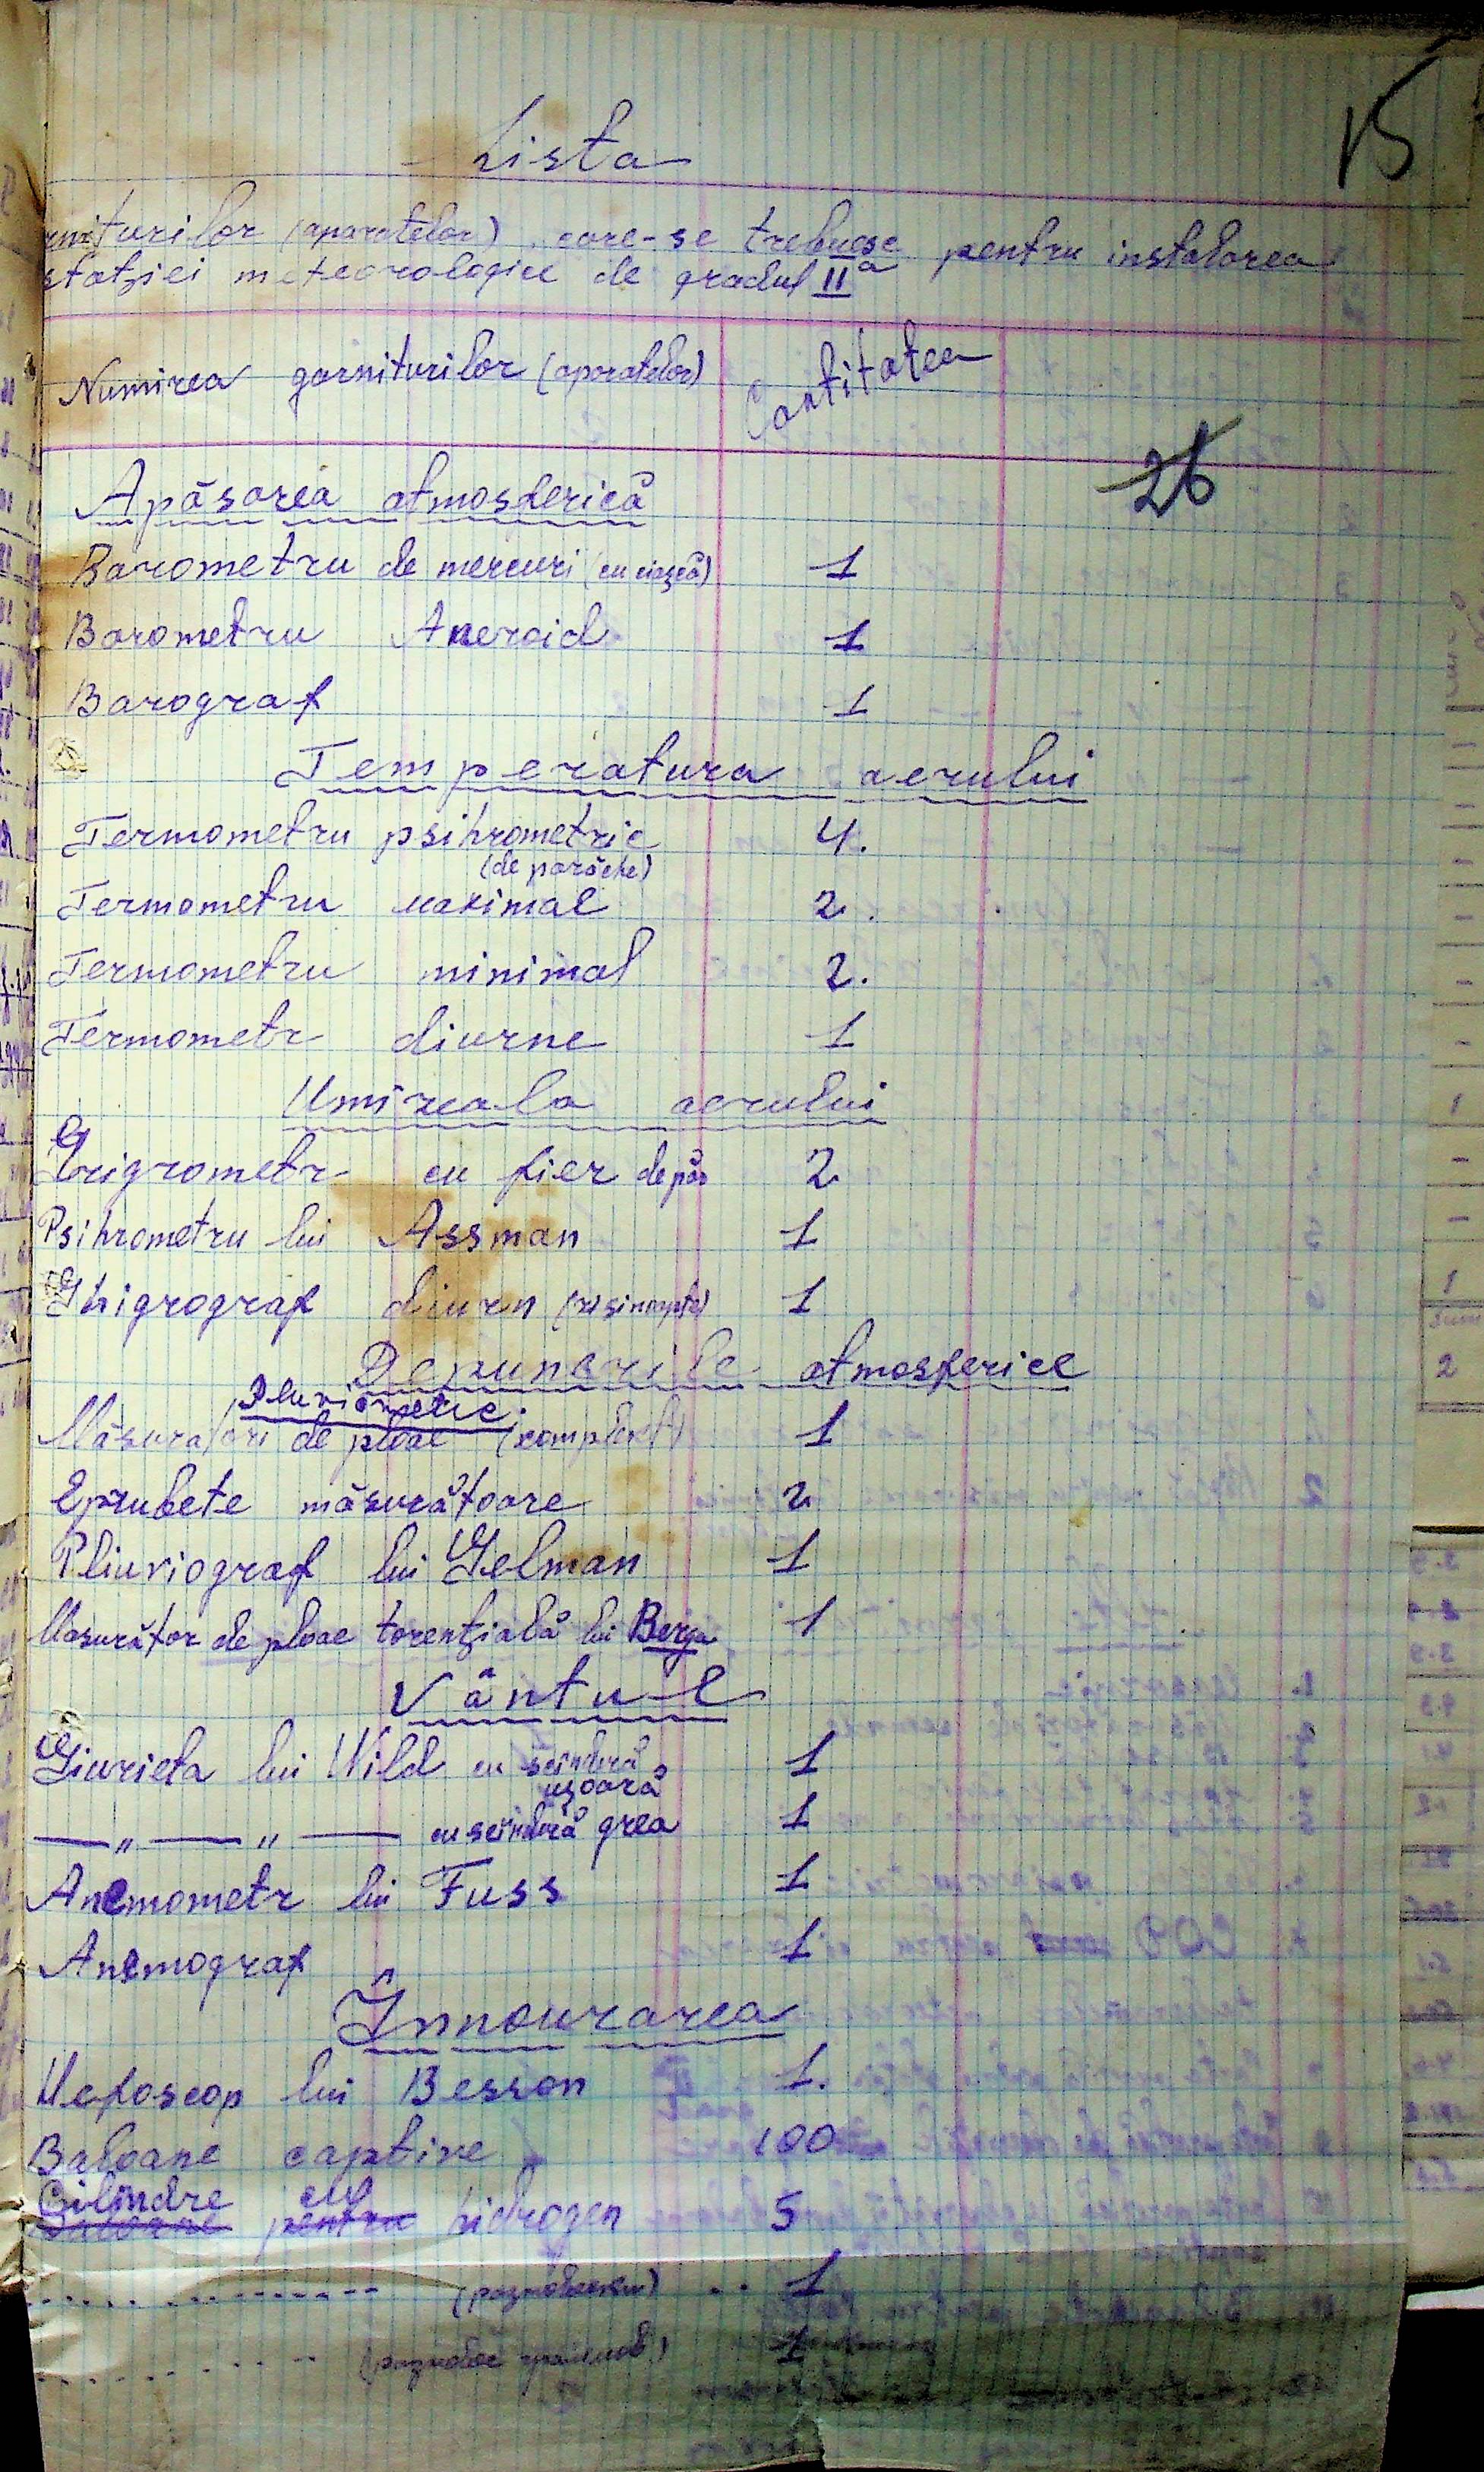 15
Lista
rniturilor (aparatelor) care-se trebuesc pentru instalarea
stației meteorologice de gradul II a
Numirea garniturilor (aparatelor) Cantitatea
26
Apăsarea atmosferică
Barometru de mercuri (cu ciașcă) 1
Barometru Aneroid 1
Barograf 1
Temperatura aerului
Termometru psihrometric 4.
(de părăche)
Termometru maximal 2.
Termometru minimal 2.
Termometr diurne 1
Umireala aerului
cu fier de păr 2
Psihrometru lui Assman 1
Ghigrograf diurn 1
Depunerile atmosferice
Pluviometre
Măsuratori de ploae (complect) 1
Eprubete măsurătoare 2
Pliuviograf lui Gelman 1
Masurător de ploae torențială lui Berga 1
Vântul
Giurieta lui Wild cu scîndură 1
ușoară
— „ — „ — cu scîndură grea 1
Anemometr lui Fuss 1
Anemograf 1
Înnourarea
Nefoscop lui Besson 1.
Baloane captive 100
Cilindre cu
Baloane pentru hidrogen 5
1
1